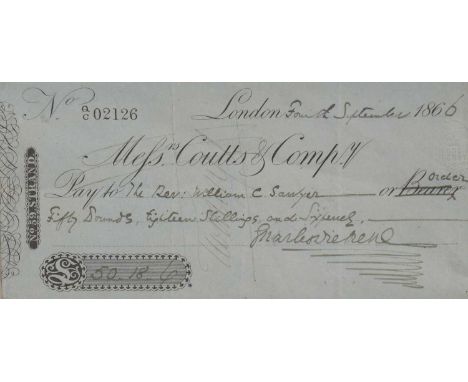 No a/c 02126
London Fourth September 1866
Messrs Coutts & Compy
order
Pay to The Rev: William C Sawyer or Bearer
Fifty Pounds, Eighteen Shillings, and Sixpence
Charles Dickens
£50.18.6
No. 59, STRAND.